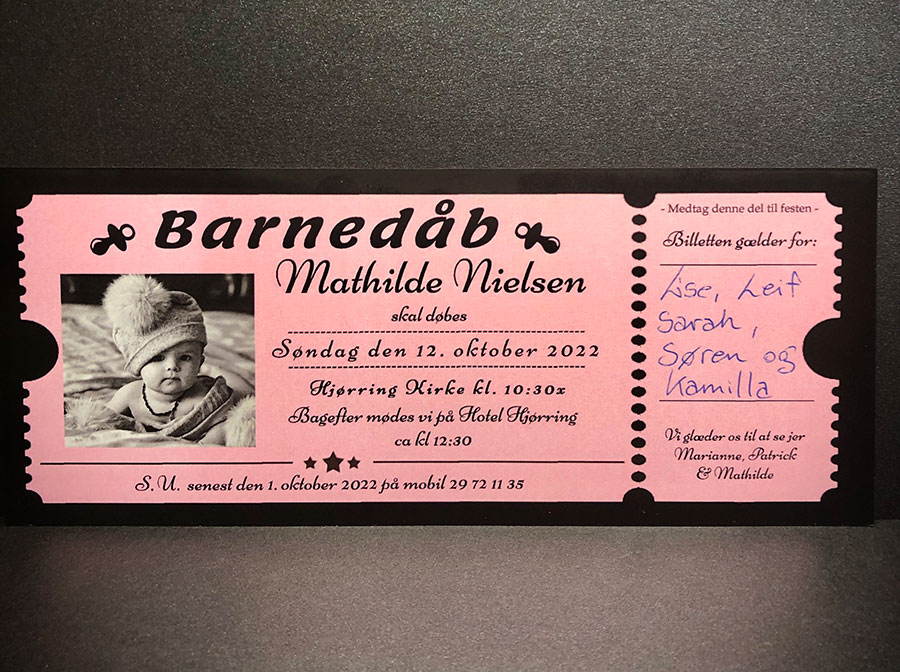 Barnedåb
Mathilde Nielsen
skal døbes
Søndag den 12. oktober 2022
Hjørring Kirke kl. 10:30x
Bagefter mødes vi på Hotel Hjørring
ca kl 12:30
S.U. senest den 1. oktober 2022 på mobil 29 72 11 35
- Medtag denne del til festen -
Billetten gælder for:
Lise, Leif
Sarah,
Søren og
Kamilla
Vi glæder os til at se jer
Marianne, Patrick
& Mathilde